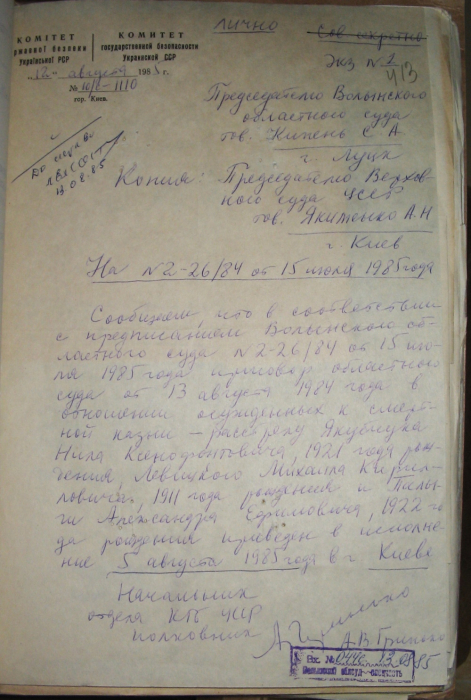 лично
Сов секретно
КОМІТЕТ
державної безпеки
Української РСР
КОМИТЕТ
государственной безопасности
Украинской ССР
"12" августа 198 г.
№ 10/1-1110
гор. Киев.
Экз №2
Председателю Волынского
областного суда
тов. Кипень С А
г. Луцк
Копия: Председателю Верхов-
ного суда УССР
тов. Якименко А.Н
г. Киев
На №2-26/84 от 15 июля 1985 года
Сообщаем, что в соответствии
с предписанием Волынского об-
ластного суда №2-26/84 от 15 ию-
ля 1985 года приговор областного
суда от 13 августа 1984 года в
отношении осужденных к смерт-
ной казни – расстрелу
Нила Ксенофонтовича, 1921 года рож-
дения, Левицкого Михаила Кирил-
ловича, 1911 года рождения и
Александра Ефимовича, 1922 го
да рождения приведен в исполне-
ние 5 августа 1985 года в г Киеве
Начальник
отдела КГБ УССР
полковник
А.В
Вх. №